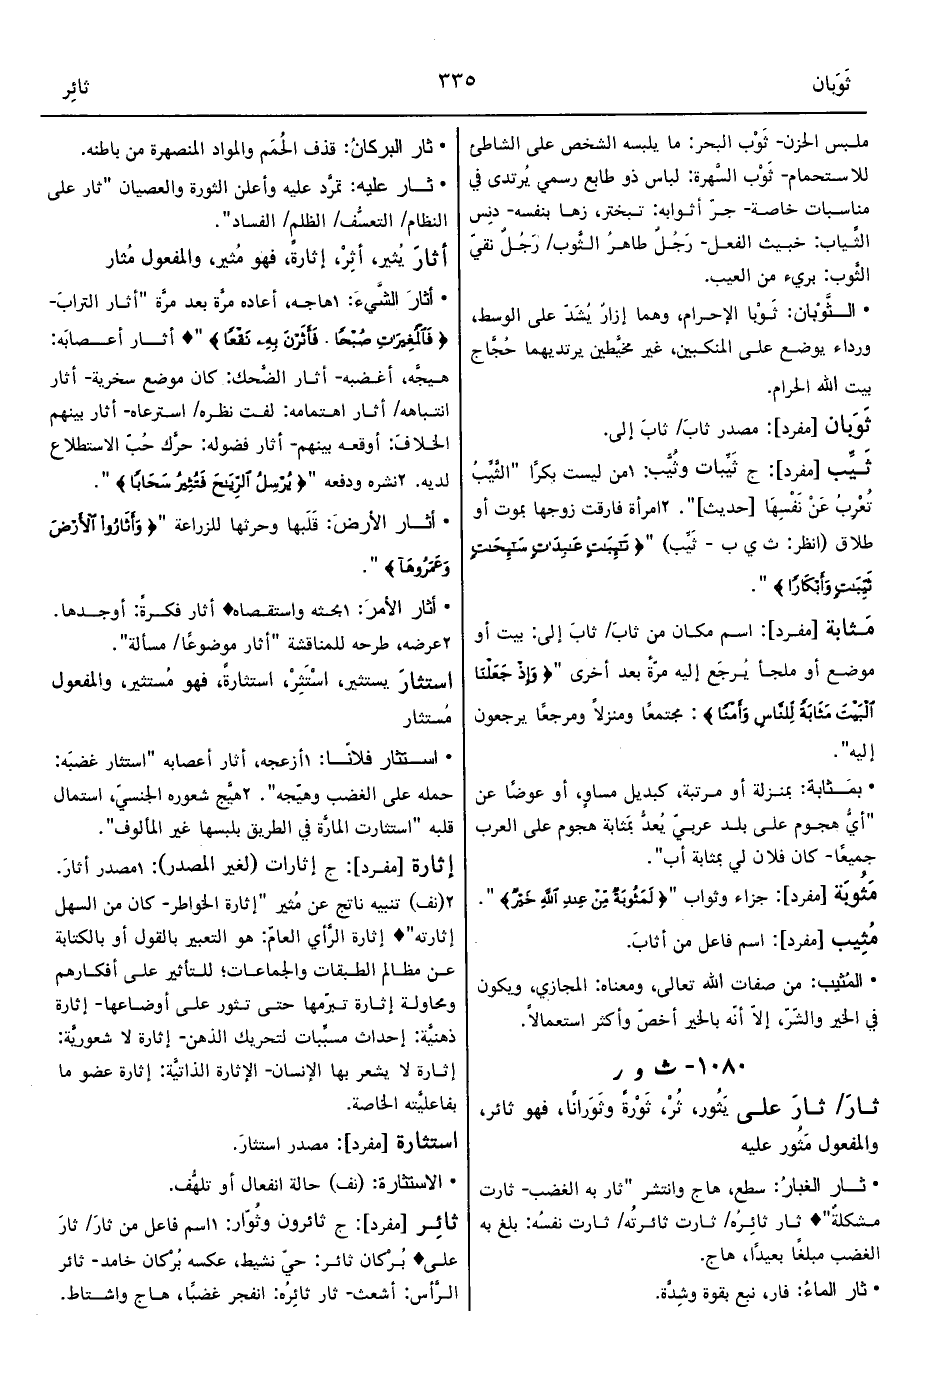 ثَوَبان
٣٣٥
ثائِر
ملبس الحزن- ثَوْب البحر: ما يلبسه الشخص على الشاطئ
للاستحمام- ثَوْب السَّهرة: لباس ذو طابع رسمي يُرتدى في
مناسبات خاصة- جرّ أثوابه: تبختر، زها بنفسه- دنِس
الثِّياب: خبيث الفعل- رَجُلٌ طاهرُ الثَّوب/ رَجُلٌ نقيّ
الثَّوب: بريء من العيب.
• الثَّوْبان: ثَوْبا الإحرام، وهما إزارٌ يُشَدّ على الوسط،
ورداء يوضع على المنكبين، غير مخيَّطين يرتديهما حُجَّاج
بيت الله الحرام.
ثَوَبان [مفرد]: مصدر ثابَ/ ثابَ إلى.
ثَيِّب [مفرد]: ج ثَيِّبات وثُيَّب: ١من ليست بكرًا "الثَّيِّبُ
تُعْرِبُ عَنْ نَفْسِهَا [حديث]". ٢امرأة فارقت زوجها بموت أو
طلاق (انظر: ث ي ب - ثَيِّب) "﴿ تَٰٓئِبَٰتٍ عَٰبِدَٰتٍ سَٰٓئِحَٰتٍ
ثَيِّبَٰتٍ وَأَبْكَارًا ﴾ ".
مَثابة [مفرد]: اسم مكان من ثابَ/ ثابَ إلى: بيت أو
موضع أو ملجأ يُرجَع إليه مرّةً بعد أخرى "﴿ وَإِذْ جَعَلْنَا
ٱلْبَيْتَ مَثَابَةً لِّلنَّاسِ وَأَمْنًا ﴾ : مجتمعًا ومنزلاً ومرجعًا يرجعون
إليه".
• بمَثابة: بمنزلة أو مرتبة، كبديل مساوٍ، أو عوضًا عن
"أيُّ هجوم على بلد عربيّ يُعدُّ بمَثابة هجوم على العرب
جميعًا- كان فلان لي بمثابة أب".
مَثُوبَة [مفرد]: جزاء وثواب "﴿ لَمَثُوبَةٌ مِّنْ عِندِ ٱللَّهِ خَيْرٌ ﴾ ".
مُثِيب [مفرد]: اسم فاعل من أثابَ.
• المُثيب: من صفات الله تعالى، ومعناه: المجازي، ويكون
في الخير والشّرّ، إلاّ أنّه بالخير أخصّ وأكثر استعمالاً.
١٠٨٠- ث و ر
ثارَ/ ثارَ على يَثُور، ثُرْ، ثَوْرةً وثَوَرانًا، فهو ثائر،
والمفعول مَثُور عليه
• ثار الغبارُ: سطع، هاج وانتشر "ثار به الغضب- ثارت
مشكلةٌ"♦ ثار ثائِرُه/ ثارت ثائرتُه/ ثارت نفسُه: بلغ به
الغضب مبلغًا بعيدًا، هاج.
• ثار الماءُ: فار، نبع بقوة وشِدَّة.
• ثار البركانُ: قذف الحُمَم والمواد المنصهرة من باطنه.
• ثار عليه: تمرَّد عليه وأعلن الثورة والعصيان "ثار على
النظام/ التعسُّف/ الظلم/ الفساد".
أثارَ يُثير، أثِرْ، إثارةً، فهو مُثير، والمفعول مُثار
• أثارَ الشَّيءَ: ١هاجه، أعاده مرَّة بعد مرَّة "أثار الترابَ-
﴿ فَٱلْمُغِيرَٰتِ صُبْحًا . فَأَثَرْنَ بِهِۦ نَقْعًا ﴾ "♦ أثار أعصابَه:
هيجَّه، أغضبه- أثار الضَّحك: كان موضع سخرية- أثار
انتباهه/ أثار اهتمامه: لفت نظره/ استرعاه- أثار بينهم
الخلافَ: أوقعه بينهم- أثار فضوله: حرَّك حُبّ الاستطلاع
لديه. ٢نشره ودفعه "﴿ يُرْسِلُ ٱلرِّيَٰحَ فَتُثِيرُ سَحَابًا ﴾ ".
• أثار الأرضَ: قَلَّبها وحرثها للزراعة "﴿ وَأَثَارُوا۟ ٱلْأَرْضَ
وَعَمَرُوهَآ ﴾ ".
• أثار الأمرَ: ١بحثه واستقصاه♦ أثار فكرةً: أوجدها.
٢عرضه، طرحه للمناقشة "أثار موضوعًا/ مسألة".
استثارَ يستثير، اسْتَثِرْ، استثارةً، فهو مُستثير، والمفعول
مُستثار
• استثار فلانًا: ١أزعجه، أثار أعصابه "استثار غضبَه:
حمله على الغضب وهيّجه". ٢هيَّج شعوره الجنسيّ، استمال
قلبه "استثارت المارَّة في الطريق بلبسها غير المألوف".
إثارة [مفرد]: ج إثارات (لغير المصدر): ١مصدر أثارَ.
٢(نف) تنبيه ناتج عن مُثير "إثارة الخواطر- كان من السهل
إثارته"♦ إثارة الرَّأي العامّ: هو التعبير بالقول أو بالكتابة
عن مظالم الطبقات والجماعات؛ للتأثير على أفكارهم
ومحاولة إثارة تبرّمها حتى تثور على أوضاعها- إثارة
ذهنيَّة: إحداث مسبِّبات لتحريك الذهن- إثارة لا شعوريَّة:
إثارة لا يشعر بها الإنسان- الإثارة الذاتيَّة: إثارة عضو ما
بفاعليَّته الخاصة.
استثارة [مفرد]: مصدر استثارَ.
• الاستثارة: (نف) حالة انفعال أو تلهُّف.
ثائر [مفرد]: ج ثائرون وثُوّار: ١اسم فاعل من ثارَ/ ثارَ
على♦ بُرْكان ثائر: حيّ نشيط، عكسه بُرْكان خامد- ثائر
الرَّأس: أشعث- ثار ثائِرُه: انفجر غضبًا، هاج واشتاط.